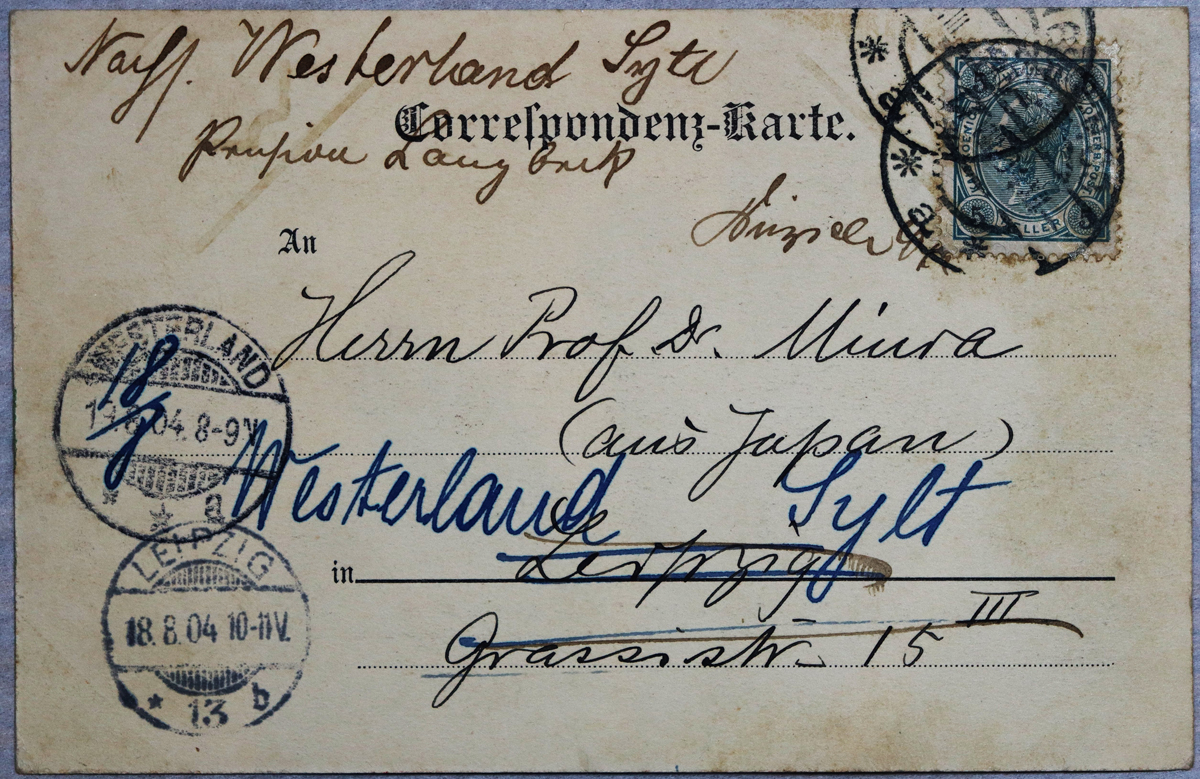 Westerland Sylt
Correspondenz-Karte.
Pension
An
Herrn Prof. Dr. Miura
(aus Japan)
Westerland Sylt
Leipzig
in
Grassistr. 15 III
WESTERLAND
19.8.04. 8-9V.
* * a
18/8
LEIPZIG
18.8.04 10-11V.
* 13 b
5 HELLER 5